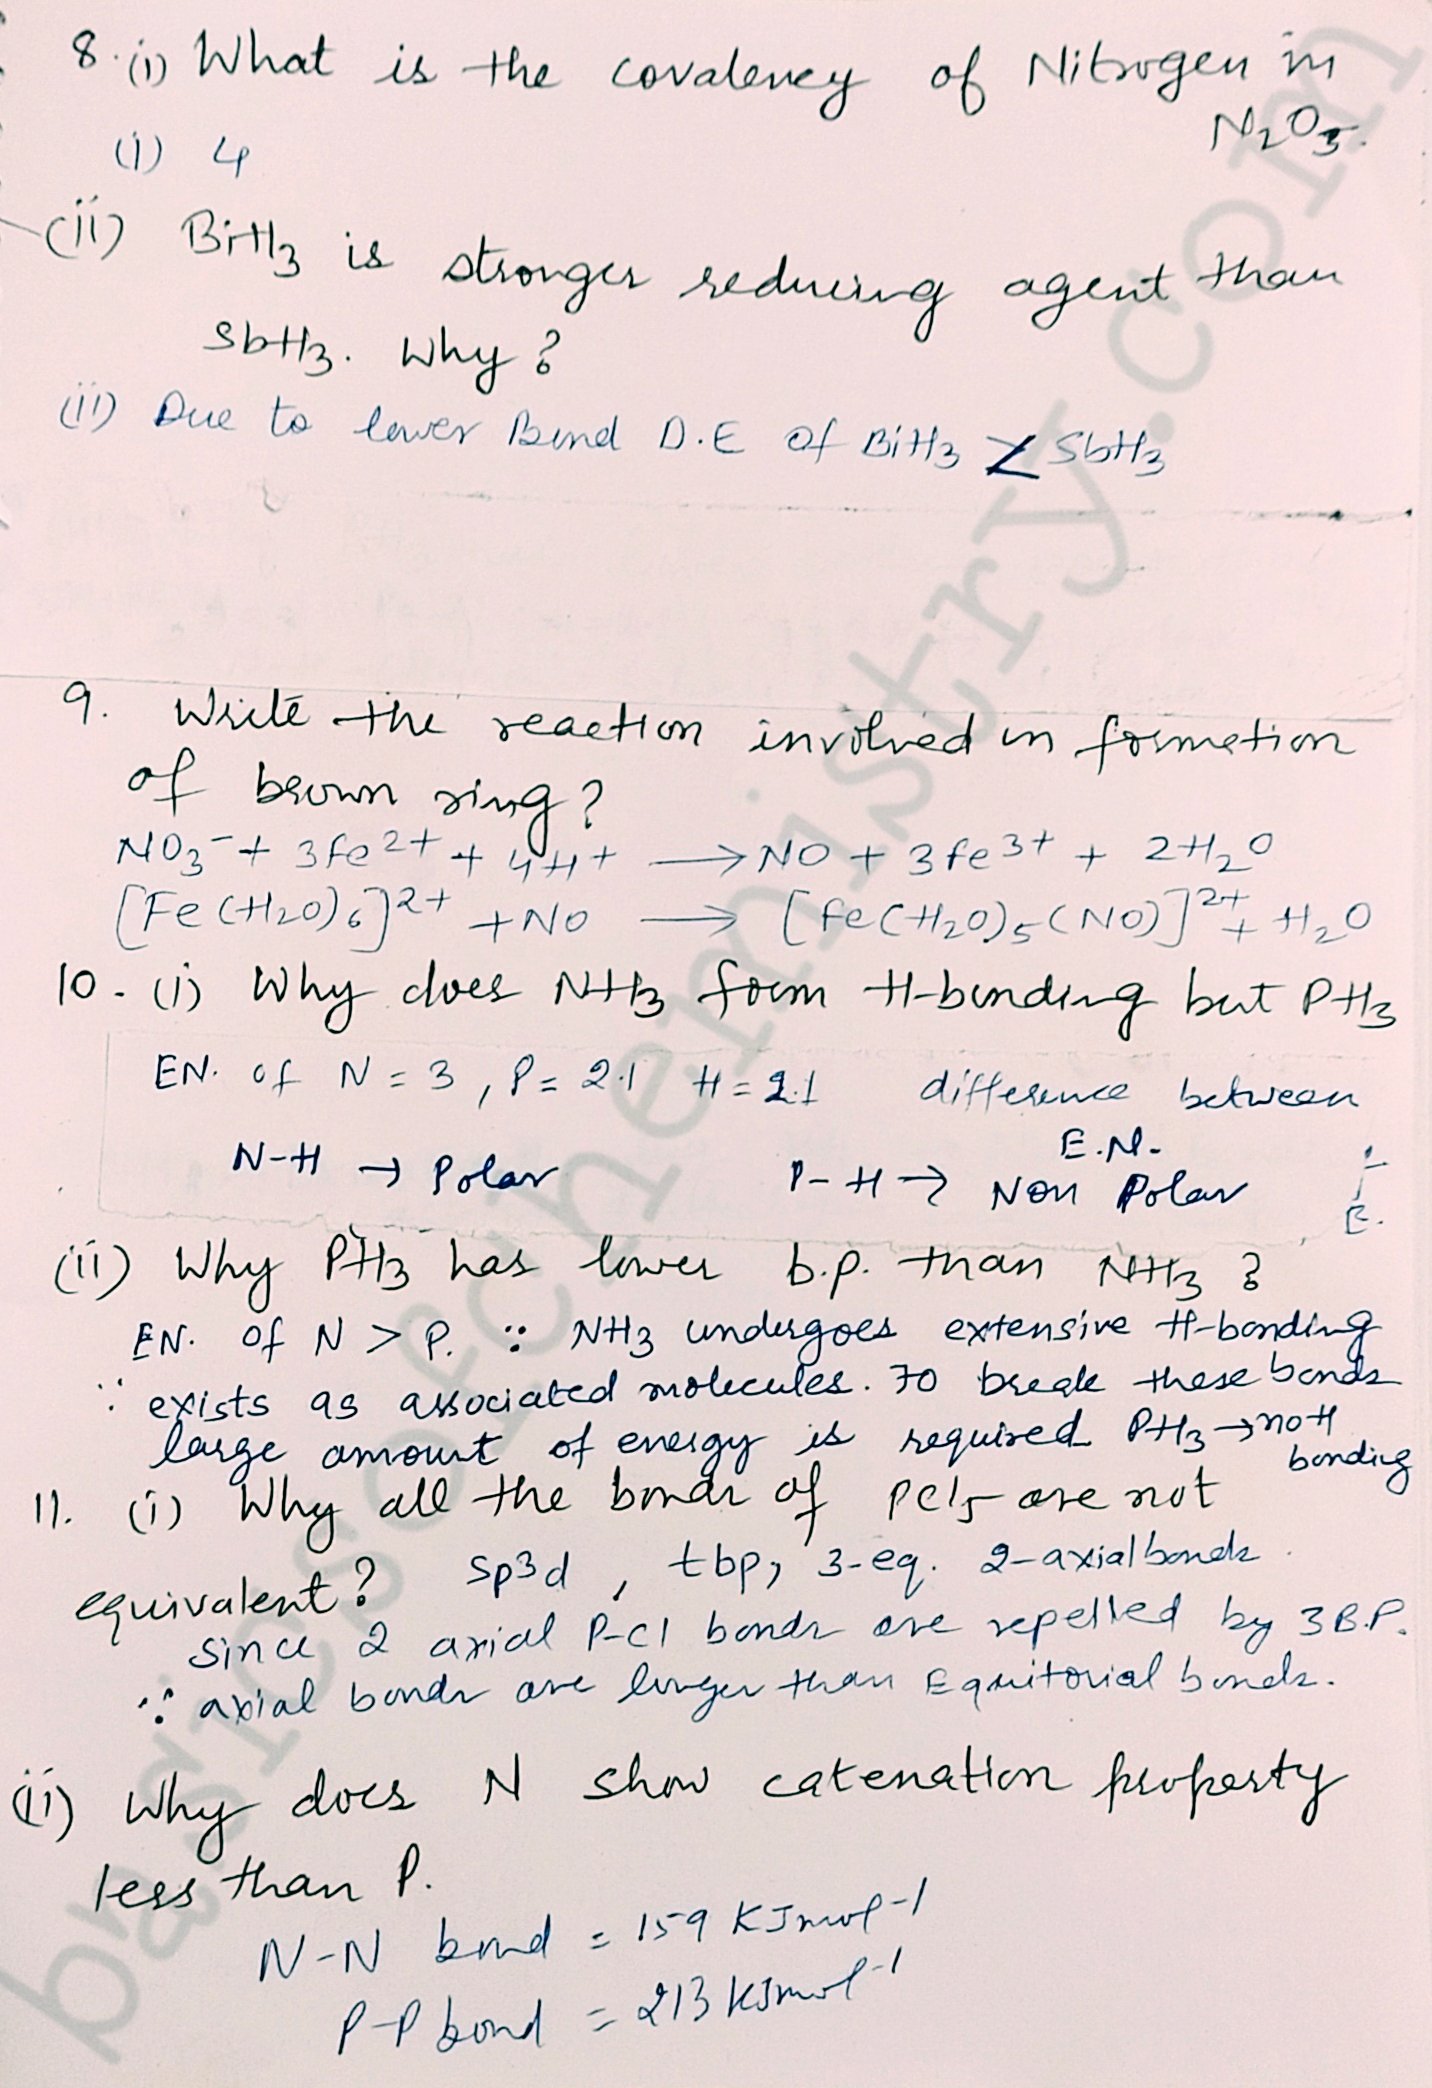 8. (i) What is the covalency of Nitrogen in
N₂O₅.
(i) 4
(ii) BiH₃ is stronger reducing agent than
SbH₃. Why?
(ii) Due to lower Bond D.E of BiH₃ < SbH₃
9. Write the reaction involved in formation
of brown ring?
NO₃⁻ + 3Fe²⁺ + 4H⁺ → NO + 3Fe³⁺ + 2H₂O
[Fe(H₂O)₆]²⁺ + NO → [Fe(H₂O)₅(NO)]²⁺ + H₂O
10. (i) Why does NH₃ form H-bonding but PH₃
EN. of N = 3, P = 2.1 H = 2.1 difference between
E.N.
N-H → Polar P-H → Non Polar
(ii) Why PH₃ has lower b.p. than NH₃ ?
EN. of N > P. ∵ NH₃ undergoes extensive H-bonding
∵ exists as associated molecules. To break these bonds
large amount of energy is required PH₃ → no H
bonding
11. (i) Why all the bonds of PCl₅ are not
equivalent? sp3d, tbp, 3-eq. 2-axial bonds.
Since 2 axial P-Cl bonds are repelled by 3 B.P.
∴ axial bonds are longer than Equitorial bonds.
(ii) Why does N show catenation property
less than P.
N-N bond = 159 KJmol⁻¹
P-P bond = 213 KJmol⁻¹
basicsofchemistry.com